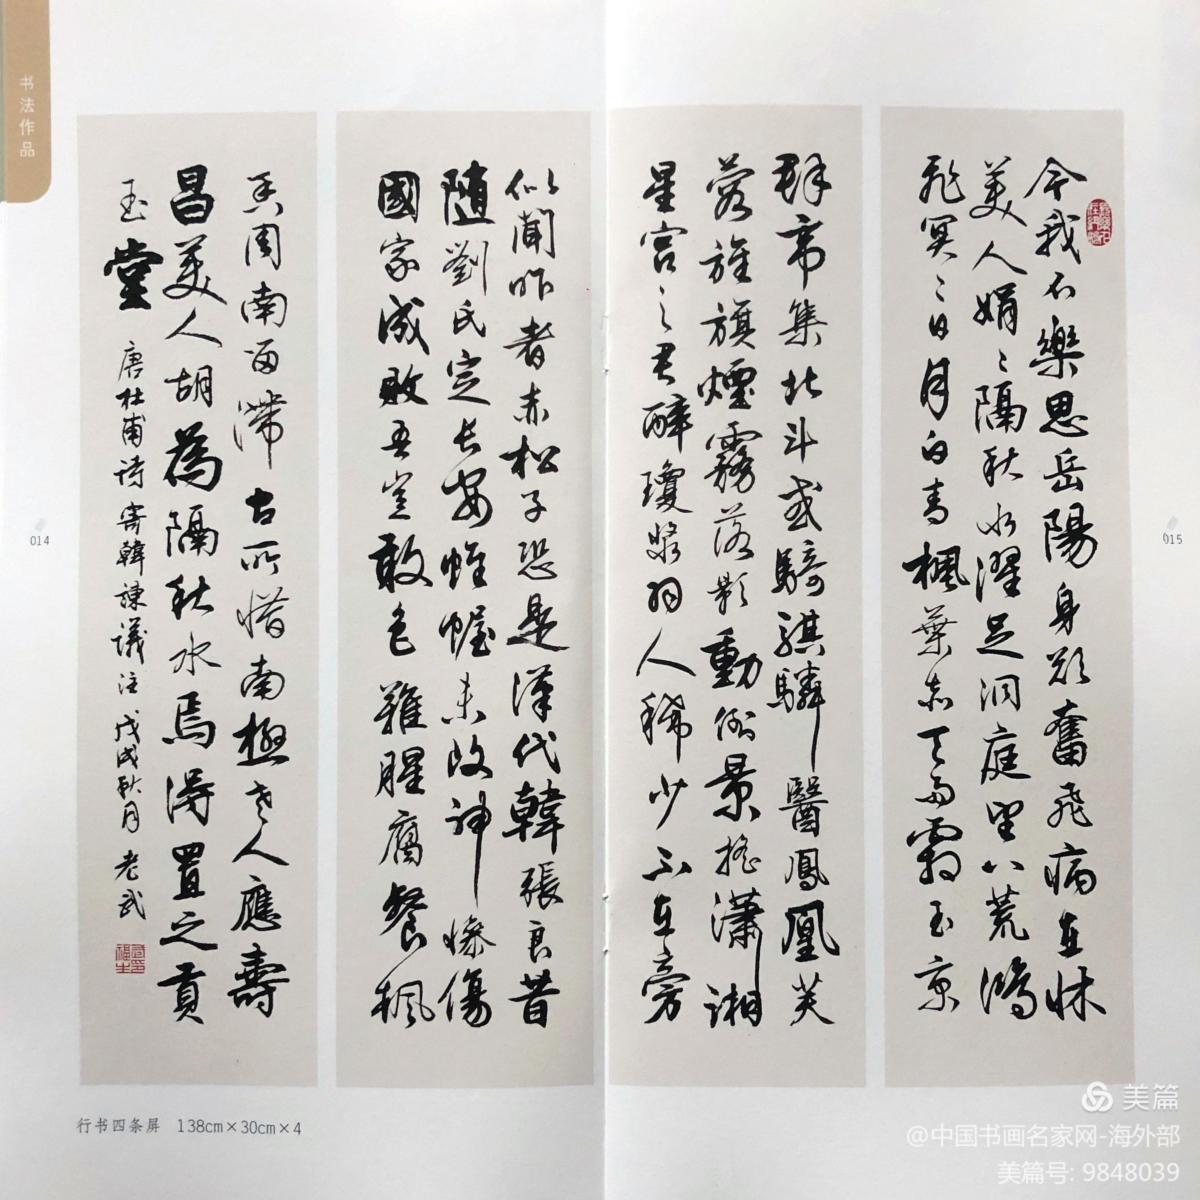 书法作品
今我不樂思岳陽身欲奮飛病在牀
美人娟〻隔秋水濯足洞庭望八荒鴻
飛冥〻日月白青楓葉赤天雨霜玉京
群帝集北斗或騎騏驎翳鳳凰芙
蓉旌旗煙霧落影動倒景搖瀟湘
星宮之君醉瓊漿羽人稀少不在旁
似聞昨者赤松子恐是漢代韓張良昔
隨劉氏定長安帷幄未改神慘傷
國家成敗吾豈敢色難腥腐餐楓
香周南留滯古所惜南極老人應壽
昌美人胡為隔秋水焉得置之貢
玉堂
唐杜甫诗寄韓諫議注戊戌秋月老武
014
015
行书四条屏 138cm×30cm×4
美篇
@中国书画名家网-海外部
美篇号: 9848039